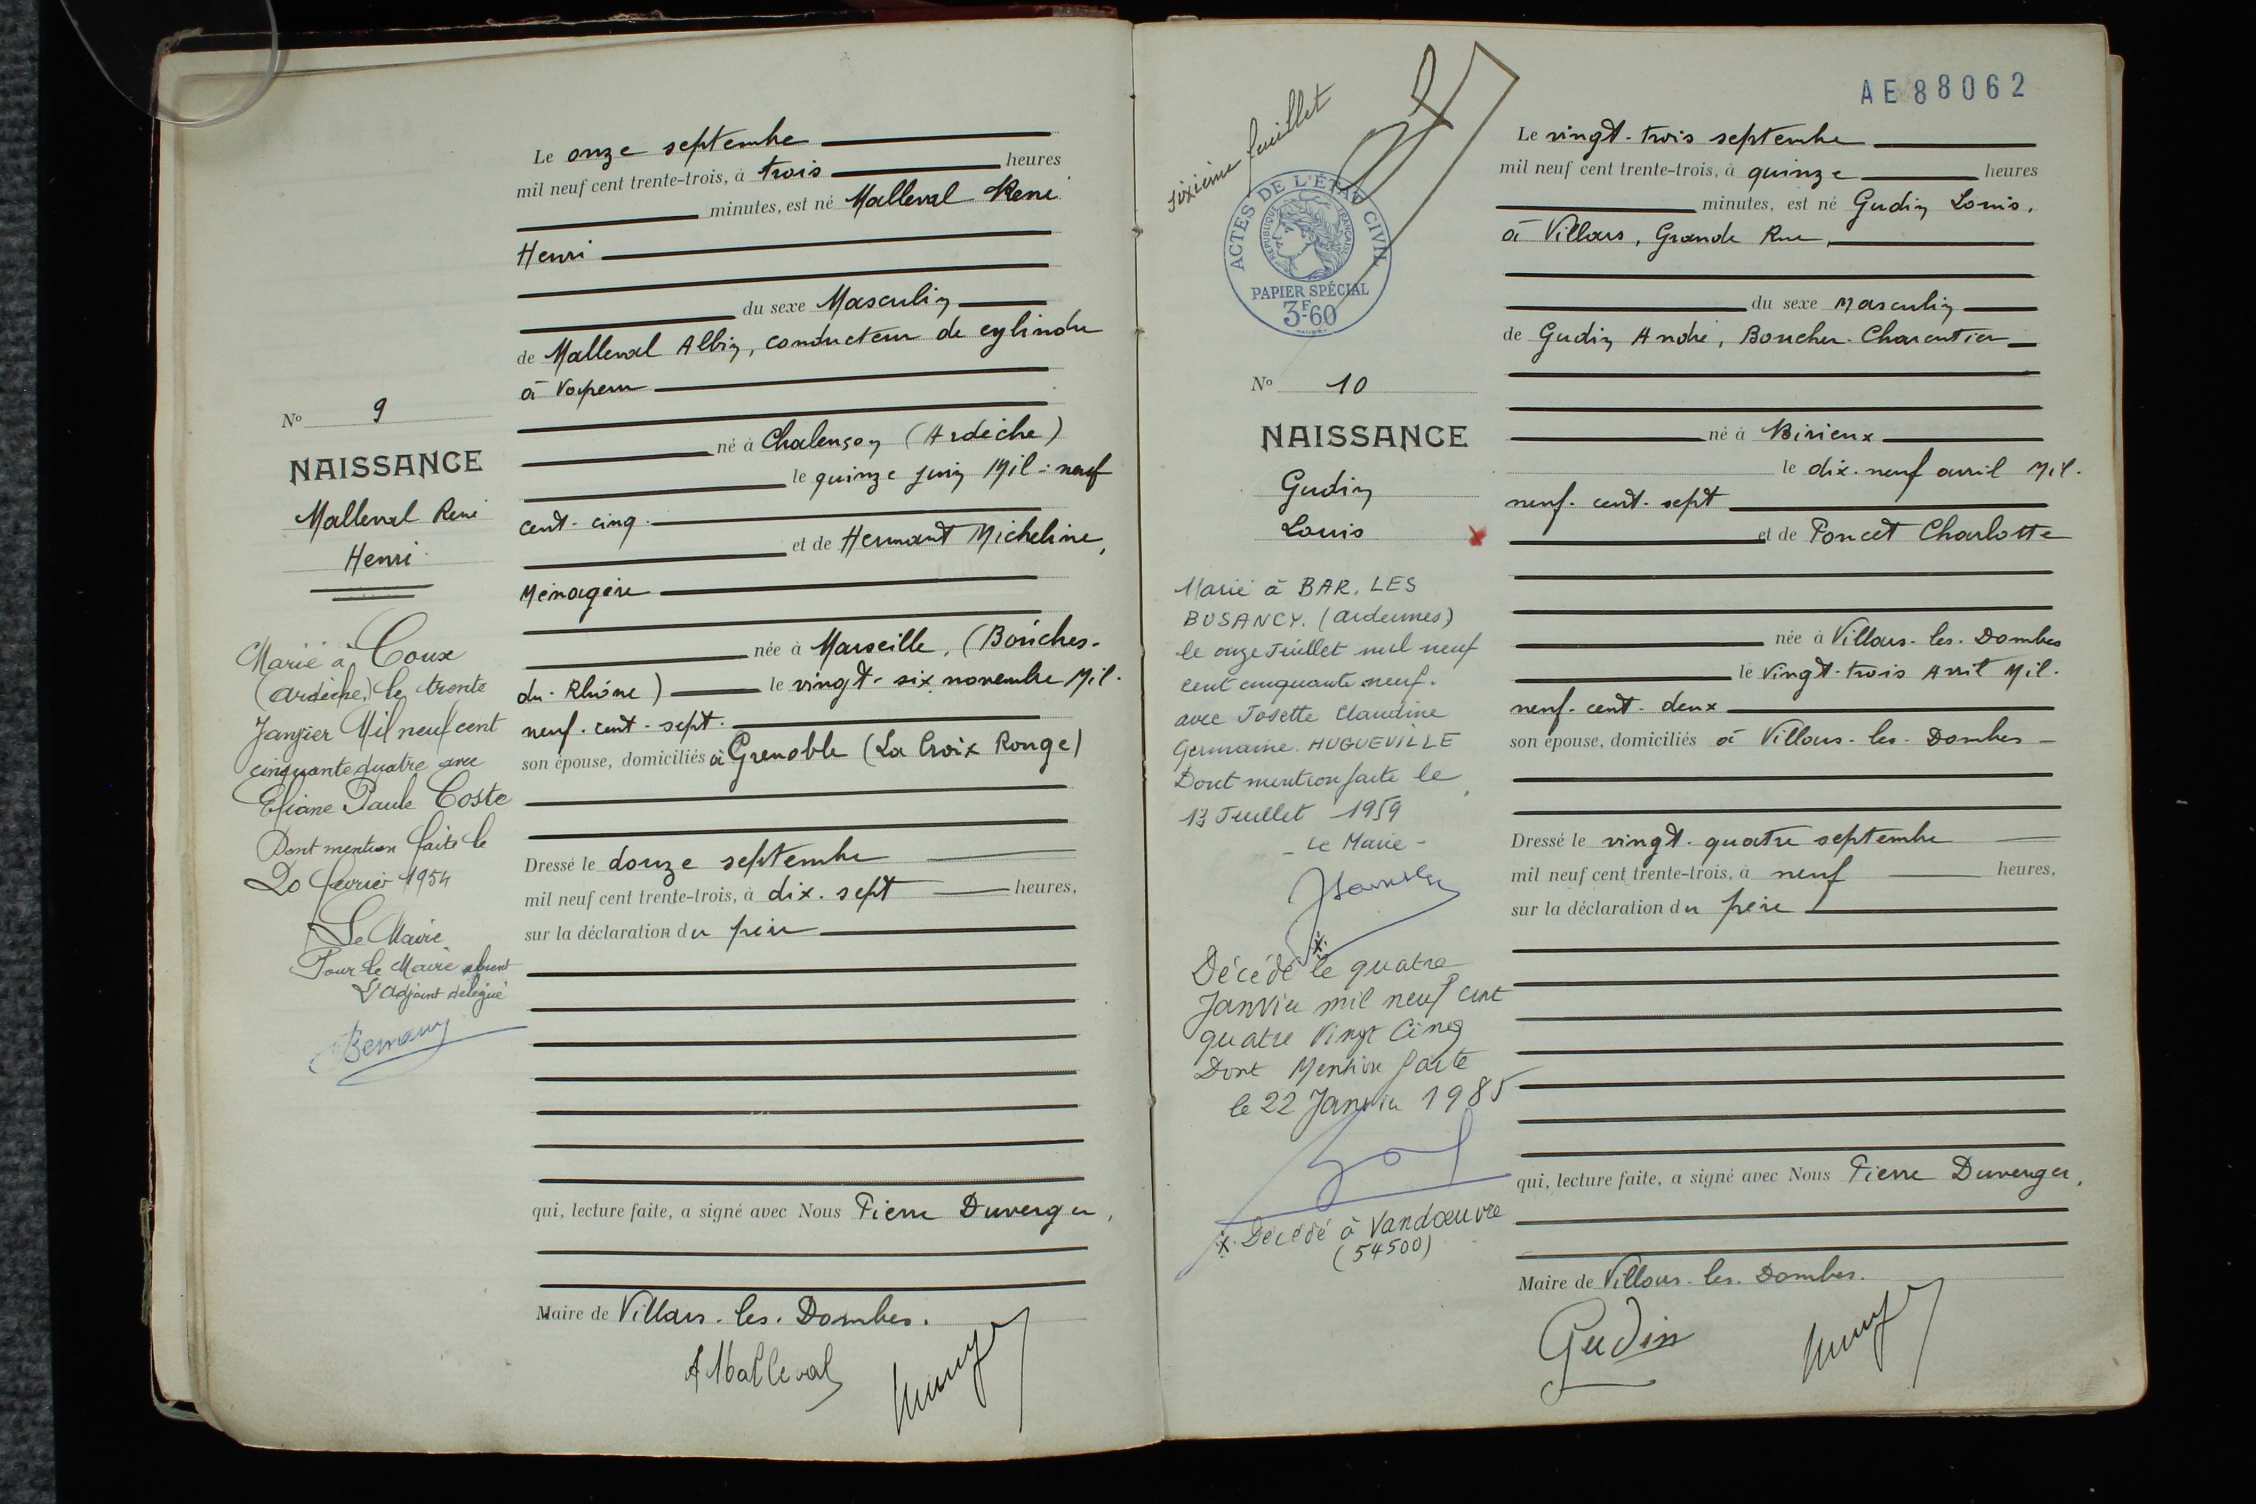 Le onze septembre
mil neuf cent trente-trois, à trois heures
minutes, est né Malleval René
Henri
du sexe Masculin
de Malleval Albin, conducteur de cylindre
à vapeur
né à Chalençon (Ardèche)
le quinze juin Mil-neuf
cent-cinq.
et de Hermant Micheline,
Ménagère
née à Marseille, (Bouches-
du-Rhône) le vingt-six novembre Mil-
neuf-cent-sept.
son épouse, domiciliés à Grenoble (La Croix Rouge)
Dressé le douze septembre
mil neuf cent trente-trois, à dix-sept heures,
sur la déclaration du père
qui, lecture faite, a signé avec Nous Pierre Duverger,
Maire de Villars-les-Dombes.
A Malleval
No 9
NAISSANCE
Malleval René
Henri
Marié à Coux
(Ardèche) le trente
Janvier Mil neuf cent
cinquante quatre avec
Eliane Paule Coste
Dont mention faite le
20 février 1954
Le Maire
Pour le Maire absent
L'Adjoint délégué
sixième feuillet
ACTES DE L'ÉTAT CIVIL
RÉPUBLIQUE FRANÇAISE
PAPIER SPÉCIAL
3F60
No 10
NAISSANCE
Gudin
Louis
Marié à BAR. LES
BUSANCY. (Ardennes)
le onze Juillet mil neuf
cent cinquante neuf.
avec Josette Claudine
Germaine HUGUEVILLE
Dont mention faite le
13 Juillet 1959
- Le Maire -
Décédé x le quatre
Janvier mil neuf cent
quatre Vingt Cinq
Dont Mention faite
le 22 Janvier 1985
x. Décédé à Vandœuvre
(54500)
AE 88062
Le vingt-trois septembre
mil neuf cent trente-trois, à quinze heures
minutes, est né Gudin Louis,
à Villars, Grande Rue,
du sexe Masculin
de Gudin André, Boucher-Charcutier
né à Birieux
le dix-neuf avril Mil-
neuf-cent-sept
et de Poncet Charlotte
née à Villars-les-Dombes
le Vingt-trois Avril Mil-
neuf-cent-deux
son épouse, domiciliés à Villars-les-Dombes
Dressé le vingt-quatre septembre
mil neuf cent trente-trois, à neuf heures,
sur la déclaration du père
qui, lecture faite, a signé avec Nous Pierre Duverger,
Maire de Villars-les-Dombes.
Gudin